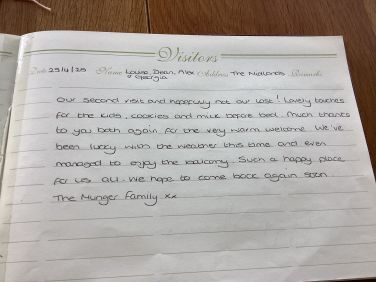 Visitors
Date 25/4/25 Name Louise, Dean, Alex Address The Midlands Remarks
& Georgia
Our second visit and hopefully not our last! Lovely touches
for the kids, cookies and milk before bed. Much thanks
to you both again for the very warm welcome. We've
been lucky with the weather this time and even
managed to enjoy the balcony. Such a happy place
for us all. We hope to come back again soon
The Munger Family xx